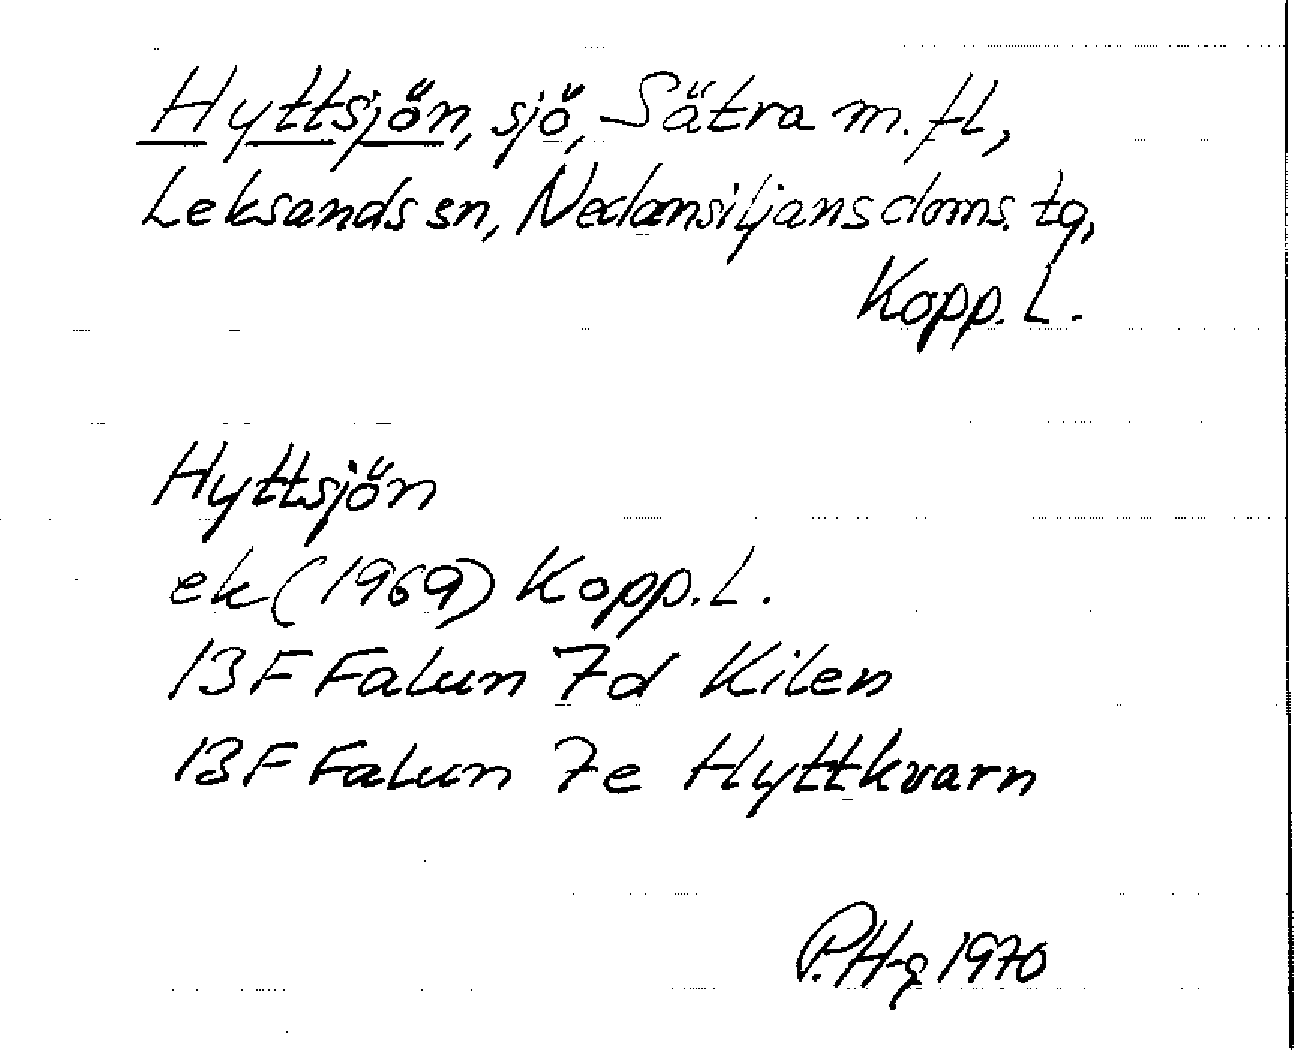 Hyttsjön, sjö, Sätra m. fl,
Leksands sn, Nedansiljans doms. tg,
Kopp. L.
Hyttsjön
ek (1969) Kopp. L.
13F Falun 7d Kilen
13F Falun 7e Hyttkvarn
P. H-g 1970